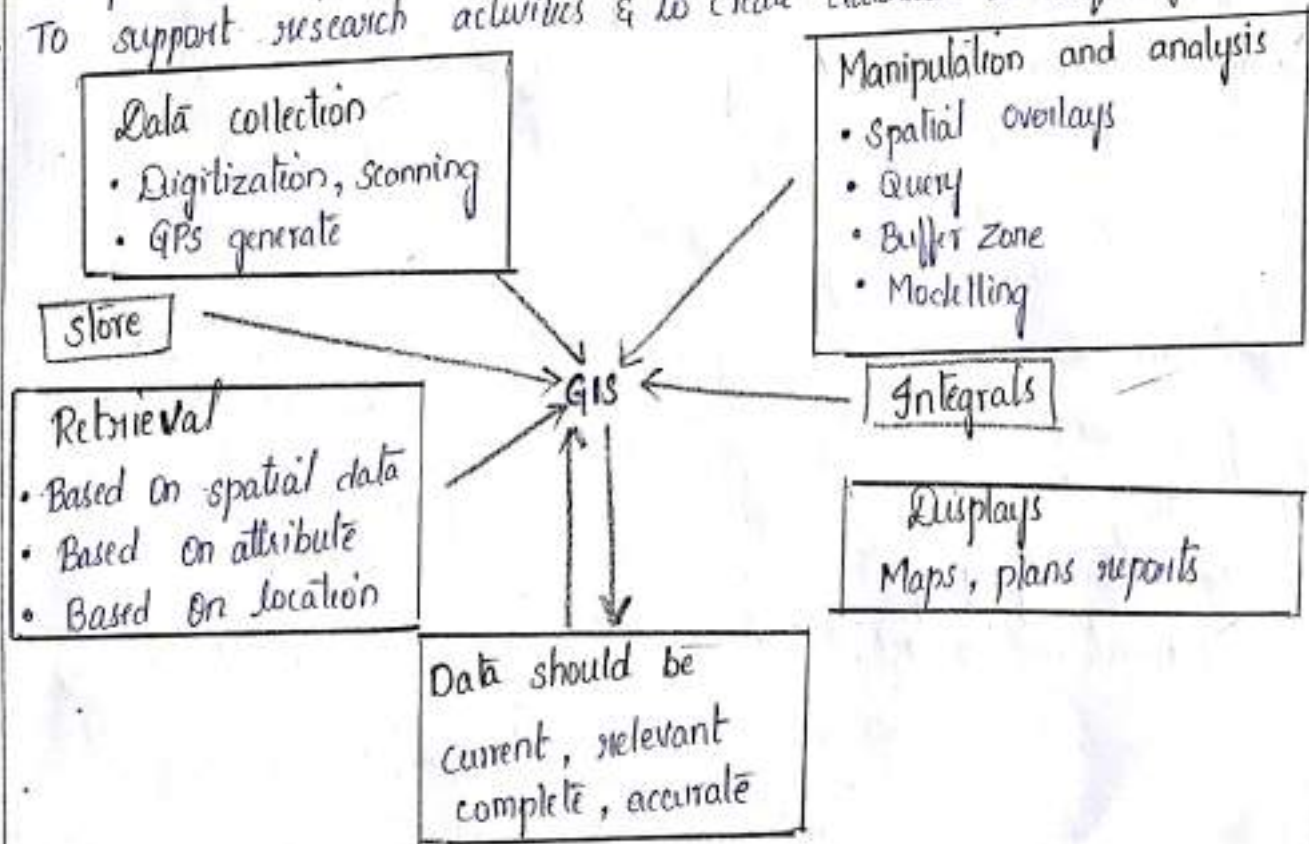 To support research activities & to
Data collection
• Digitization, Scanning
• GPS generate
Manipulation and analysis
• Spatial overlays
• Query
• Buffer Zone
• Modelling
Store
GIS
Integrals
Retrieval
• Based on spatial data
• Based on attribute
• Based on location
Displays
Maps, plans reports
Data should be
current, relevant
complete, accurate